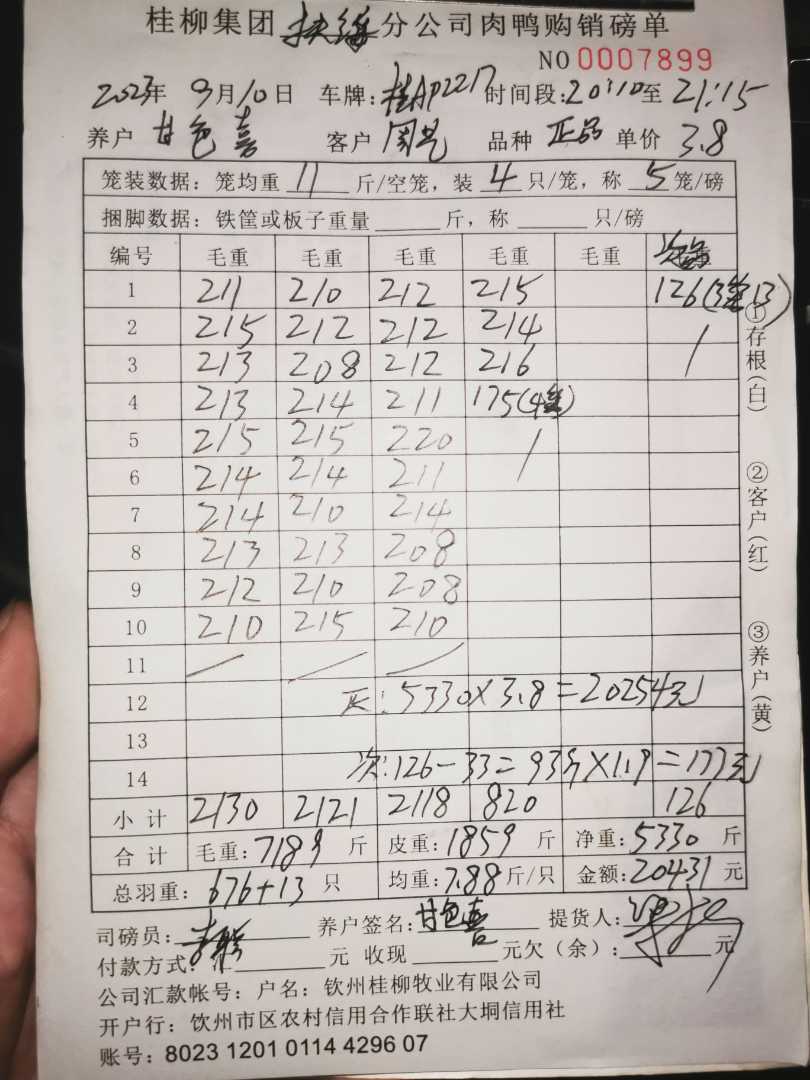 桂柳集团扶绥分公司肉鸭购销磅单
NO 0007899
2023年 9月10日 车牌:桂AP2217 时间段:20:10至21:15
养户 甘色喜 客户 周艺 品种 正品 单价 3.8
笼装数据:笼均重 11 斤/空笼,装 4 只/笼,称 5 笼/磅
捆脚数据:铁筐或板子重量 斤,称 只/磅
编号 毛重 毛重 毛重 毛重 毛重
1 211 210 212 215 126(3笼13)
2 215 212 212 214 /
3 213 208 212 216
4 213 214 211 175(4笼)
5 215 215 220 /
6 214 214 211
7 214 210 214
8 213 213 208
9 212 210 208
10 210 215 210
11 / / /
12 正:5330×3.8=20254元
13
14 次:126-33=93斤×1.9=177元
小计 2130 2121 2118 820 126
合计 毛重:7189 斤 皮重:1859 斤 净重:5330 斤
总羽重:676+13 只 均重:7.88斤/只 金额:20431元
司磅员: 养户签名:甘色喜 提货人:
付款方式: 元 收现 元欠(余): 元
公司汇款帐号:户名:钦州桂柳牧业有限公司
开户行:钦州市区农村信用合作联社大垌信用社
账号:8023 1201 0114 4296 07
①存根(白)
②客户(红)
③养户(黄)